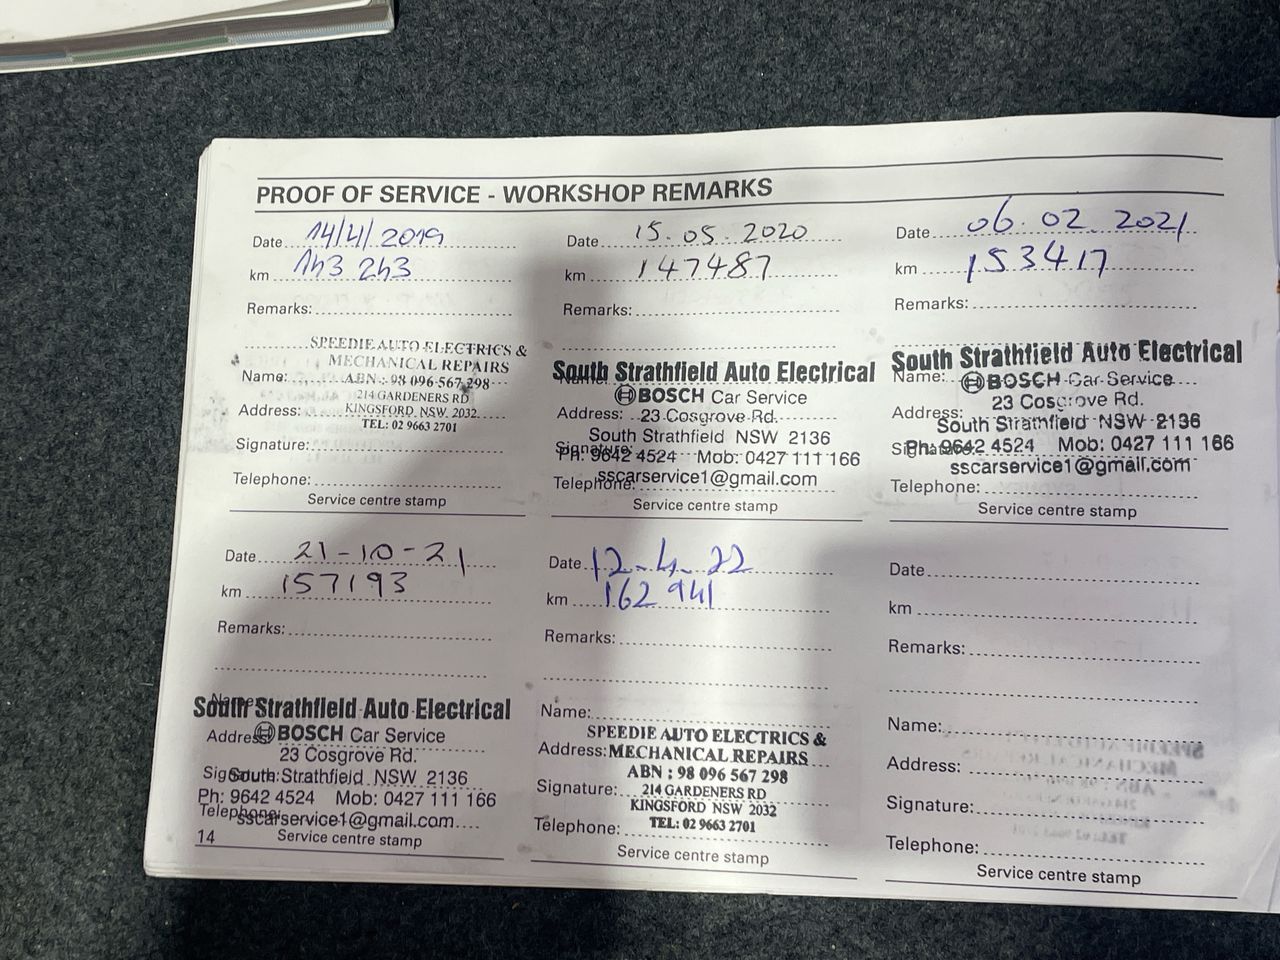 PROOF OF SERVICE - WORKSHOP REMARKS
Date 14/4/2019
km 143 243
Remarks:
SPEEDIE AUTO ELECTRICS &
MECHANICAL REPAIRS
Name: ABN : 98 096 567 298
214 GARDENERS RD
Address: KINGSFORD. NSW. 2032
TEL: 02 9663 2701
Signature:
Telephone:
Service centre stamp
Date 15.05.2020
km 147487
Remarks:
South Strathfield Auto Electrical
Name:
BOSCH Car Service
Address: 23 Cosgrove Rd.
South Strathfield NSW 2136
Signature:
Ph: 9642 4524 Mob: 0427 111 166
Telephone: sscarservice1@gmail.com
Service centre stamp
Date 06.02.2021
km 153417
Remarks:
South Strathfield Auto Electrical
Name: BOSCH Car Service
23 Cosgrove Rd.
Address:
South Strathfield NSW 2136
Signature: Ph: 9642 4524 Mob: 0427 111 166
sscarservice1@gmail.com
Telephone:
Service centre stamp
Date 21-10-21
km 157193
Remarks:
Name:
South Strathfield Auto Electrical
Address: BOSCH Car Service
23 Cosgrove Rd.
Signature: South Strathfield NSW 2136
Ph: 9642 4524 Mob: 0427 111 166
Telephone: sscarservice1@gmail.com
14
Service centre stamp
Date 12-4-22
km 162 941
Remarks:
Name:
SPEEDIE AUTO ELECTRICS &
Address: MECHANICAL REPAIRS
ABN : 98 096 567 298
Signature: 214 GARDENERS RD
KINGSFORD NSW 2032
Telephone: TEL: 02 9663 2701
Service centre stamp
Date
km
Remarks:
Name:
Address:
Signature:
Telephone:
Service centre stamp